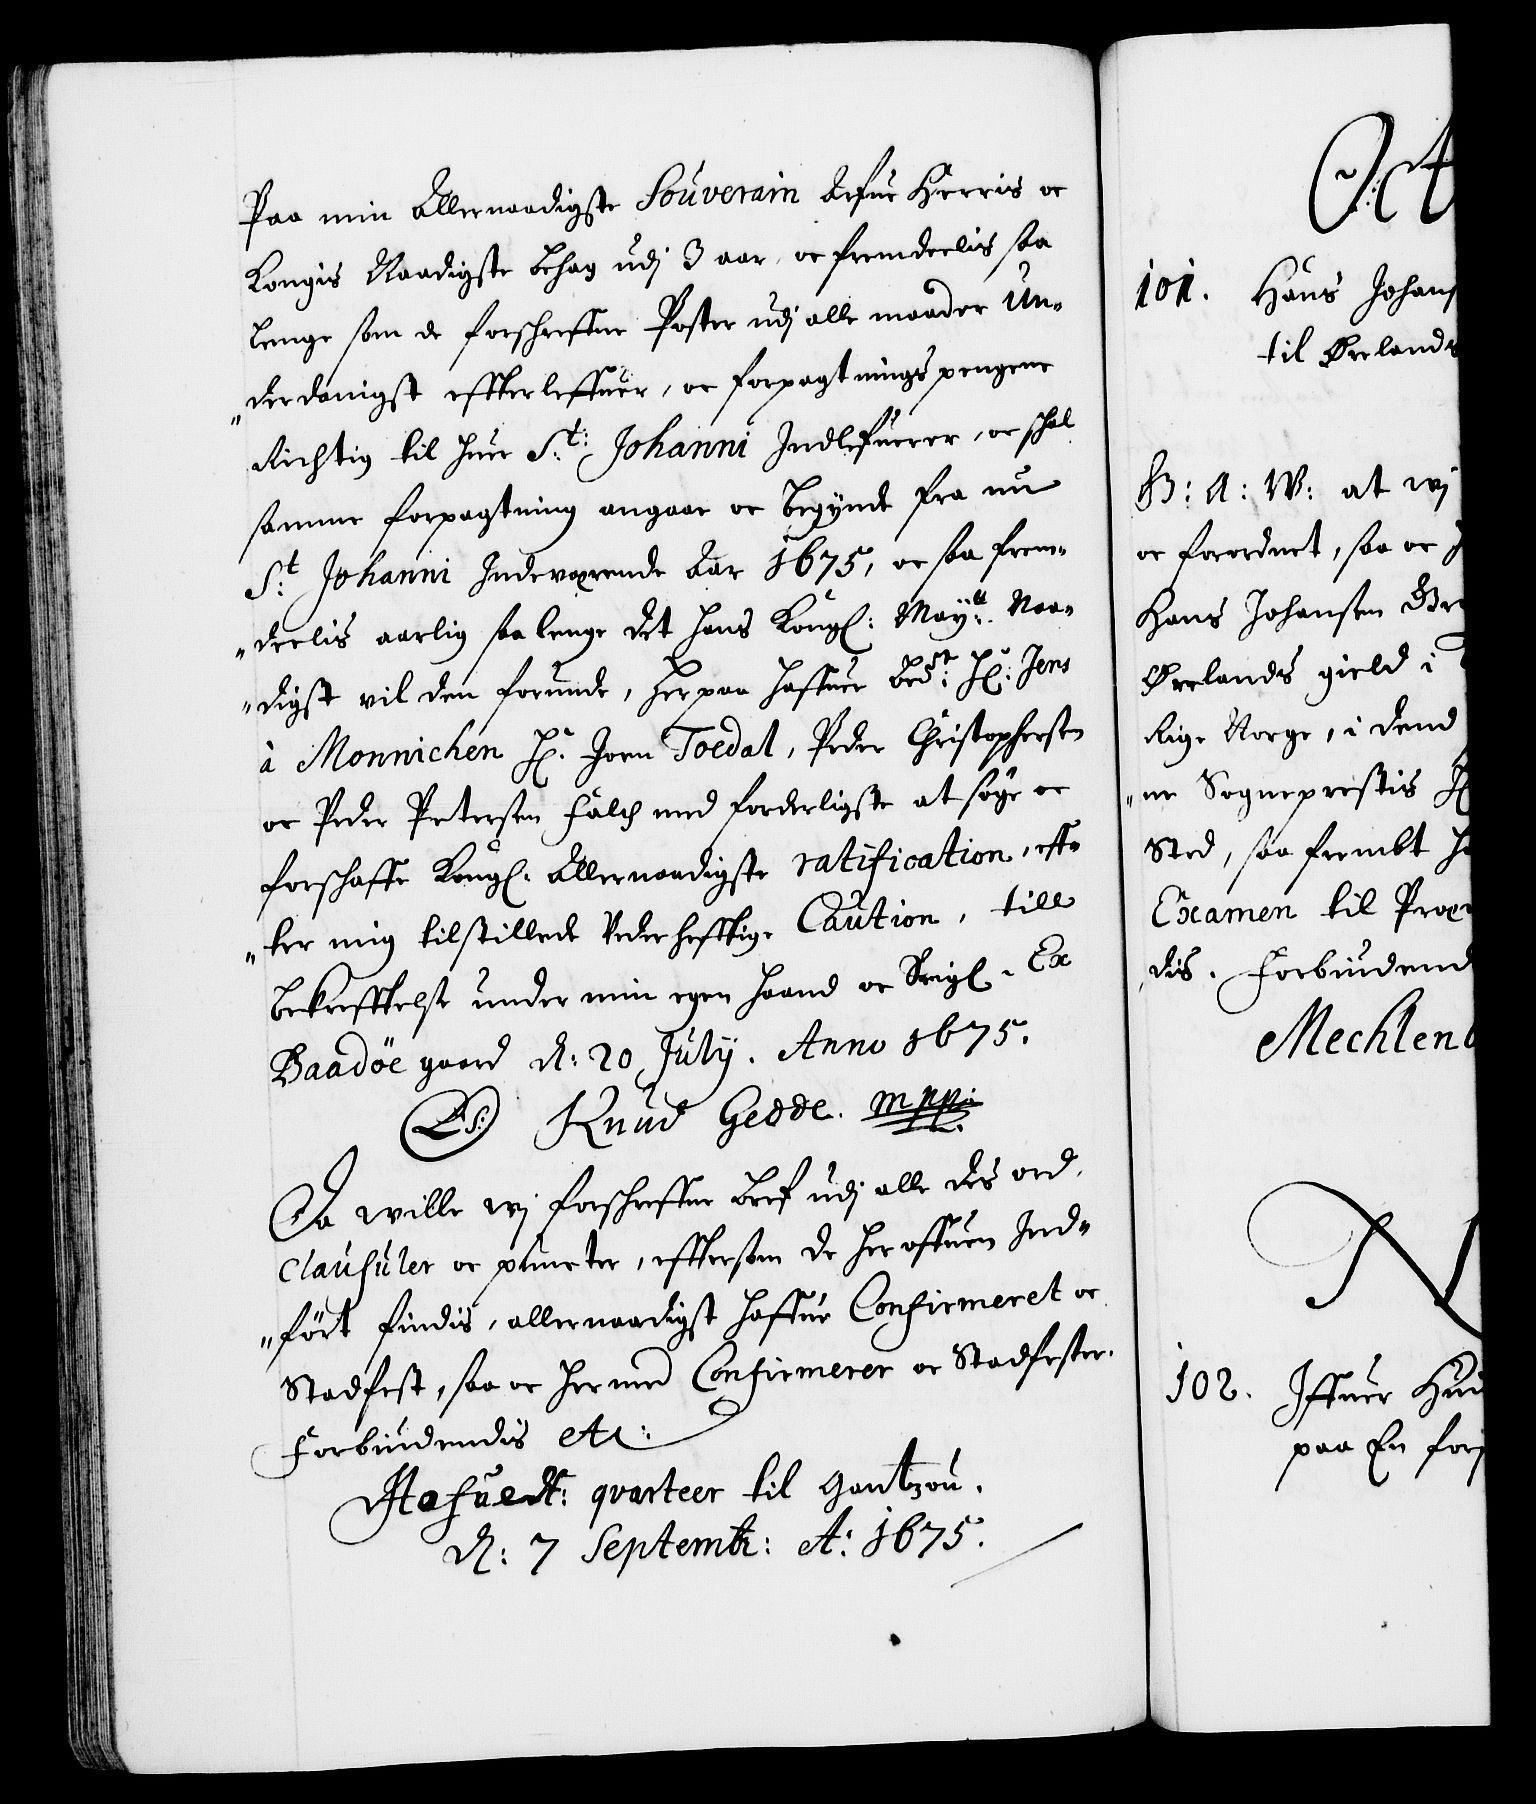 Paa min Allernaadigste Souverain Arfue Herris oc
Kongis Naadigste behag udj 3 aar, oc fremdeelis saa
lenge som de forschreffne Poster udj alle maader Un-
„derdanigst effterleffuer, oc forpagtnings pengene
Richtig til huer St: Johanni Indlefuerer, oc schal
samme forpagtning angaae oc begynde fra nu
St: Johanni Indeværende Aar 1675, oc saa frem-
„deelis aarlig saa lenge det hans Kongl: Maytt: Naa-
„digst vil dem forunde, herpaa haffuer bedst: Hr: Jens
à Monnichen Hr: Joen Toedal, Peder Christophersen
oc Peder Petersen Falch med forderligste at søge oc
forschaffe Kongl: Allernaadigste ratification, eff-
„ter mig tilstillede Vederhefftige Caution, till
bekrefftelse under min egen haand oc Seigl. Ex
Baadöe gaard d: 20 July. Anno 1675.
LS: Knud Gedde. mpp:
Da wille wj forschreffne bref udj alle des ord,
Clausuler oc puncter, efftersom de her offuen Ind-
„fört findis, allernaadigst haffue Confirmeret oc
Stadfest, saa oc hermed Confirmerer oc Stadfester.
Forbiudendis etc:
Hofuedt: qvarteer til Gantzou.
d: 7 Septembr: A: 1675.
Oct
101. Hans Johans
til Ørelands
G: A: W: at wj
oc forordnet, saa oc
Hans Johansen
Ørelands gield i
Rige Norge, i dend
„ne Sogneprestis Hr
Sted, saa frembt
Examen til
dis. Forbiudend
Mechlenb
N
102. Iffuer
paa En